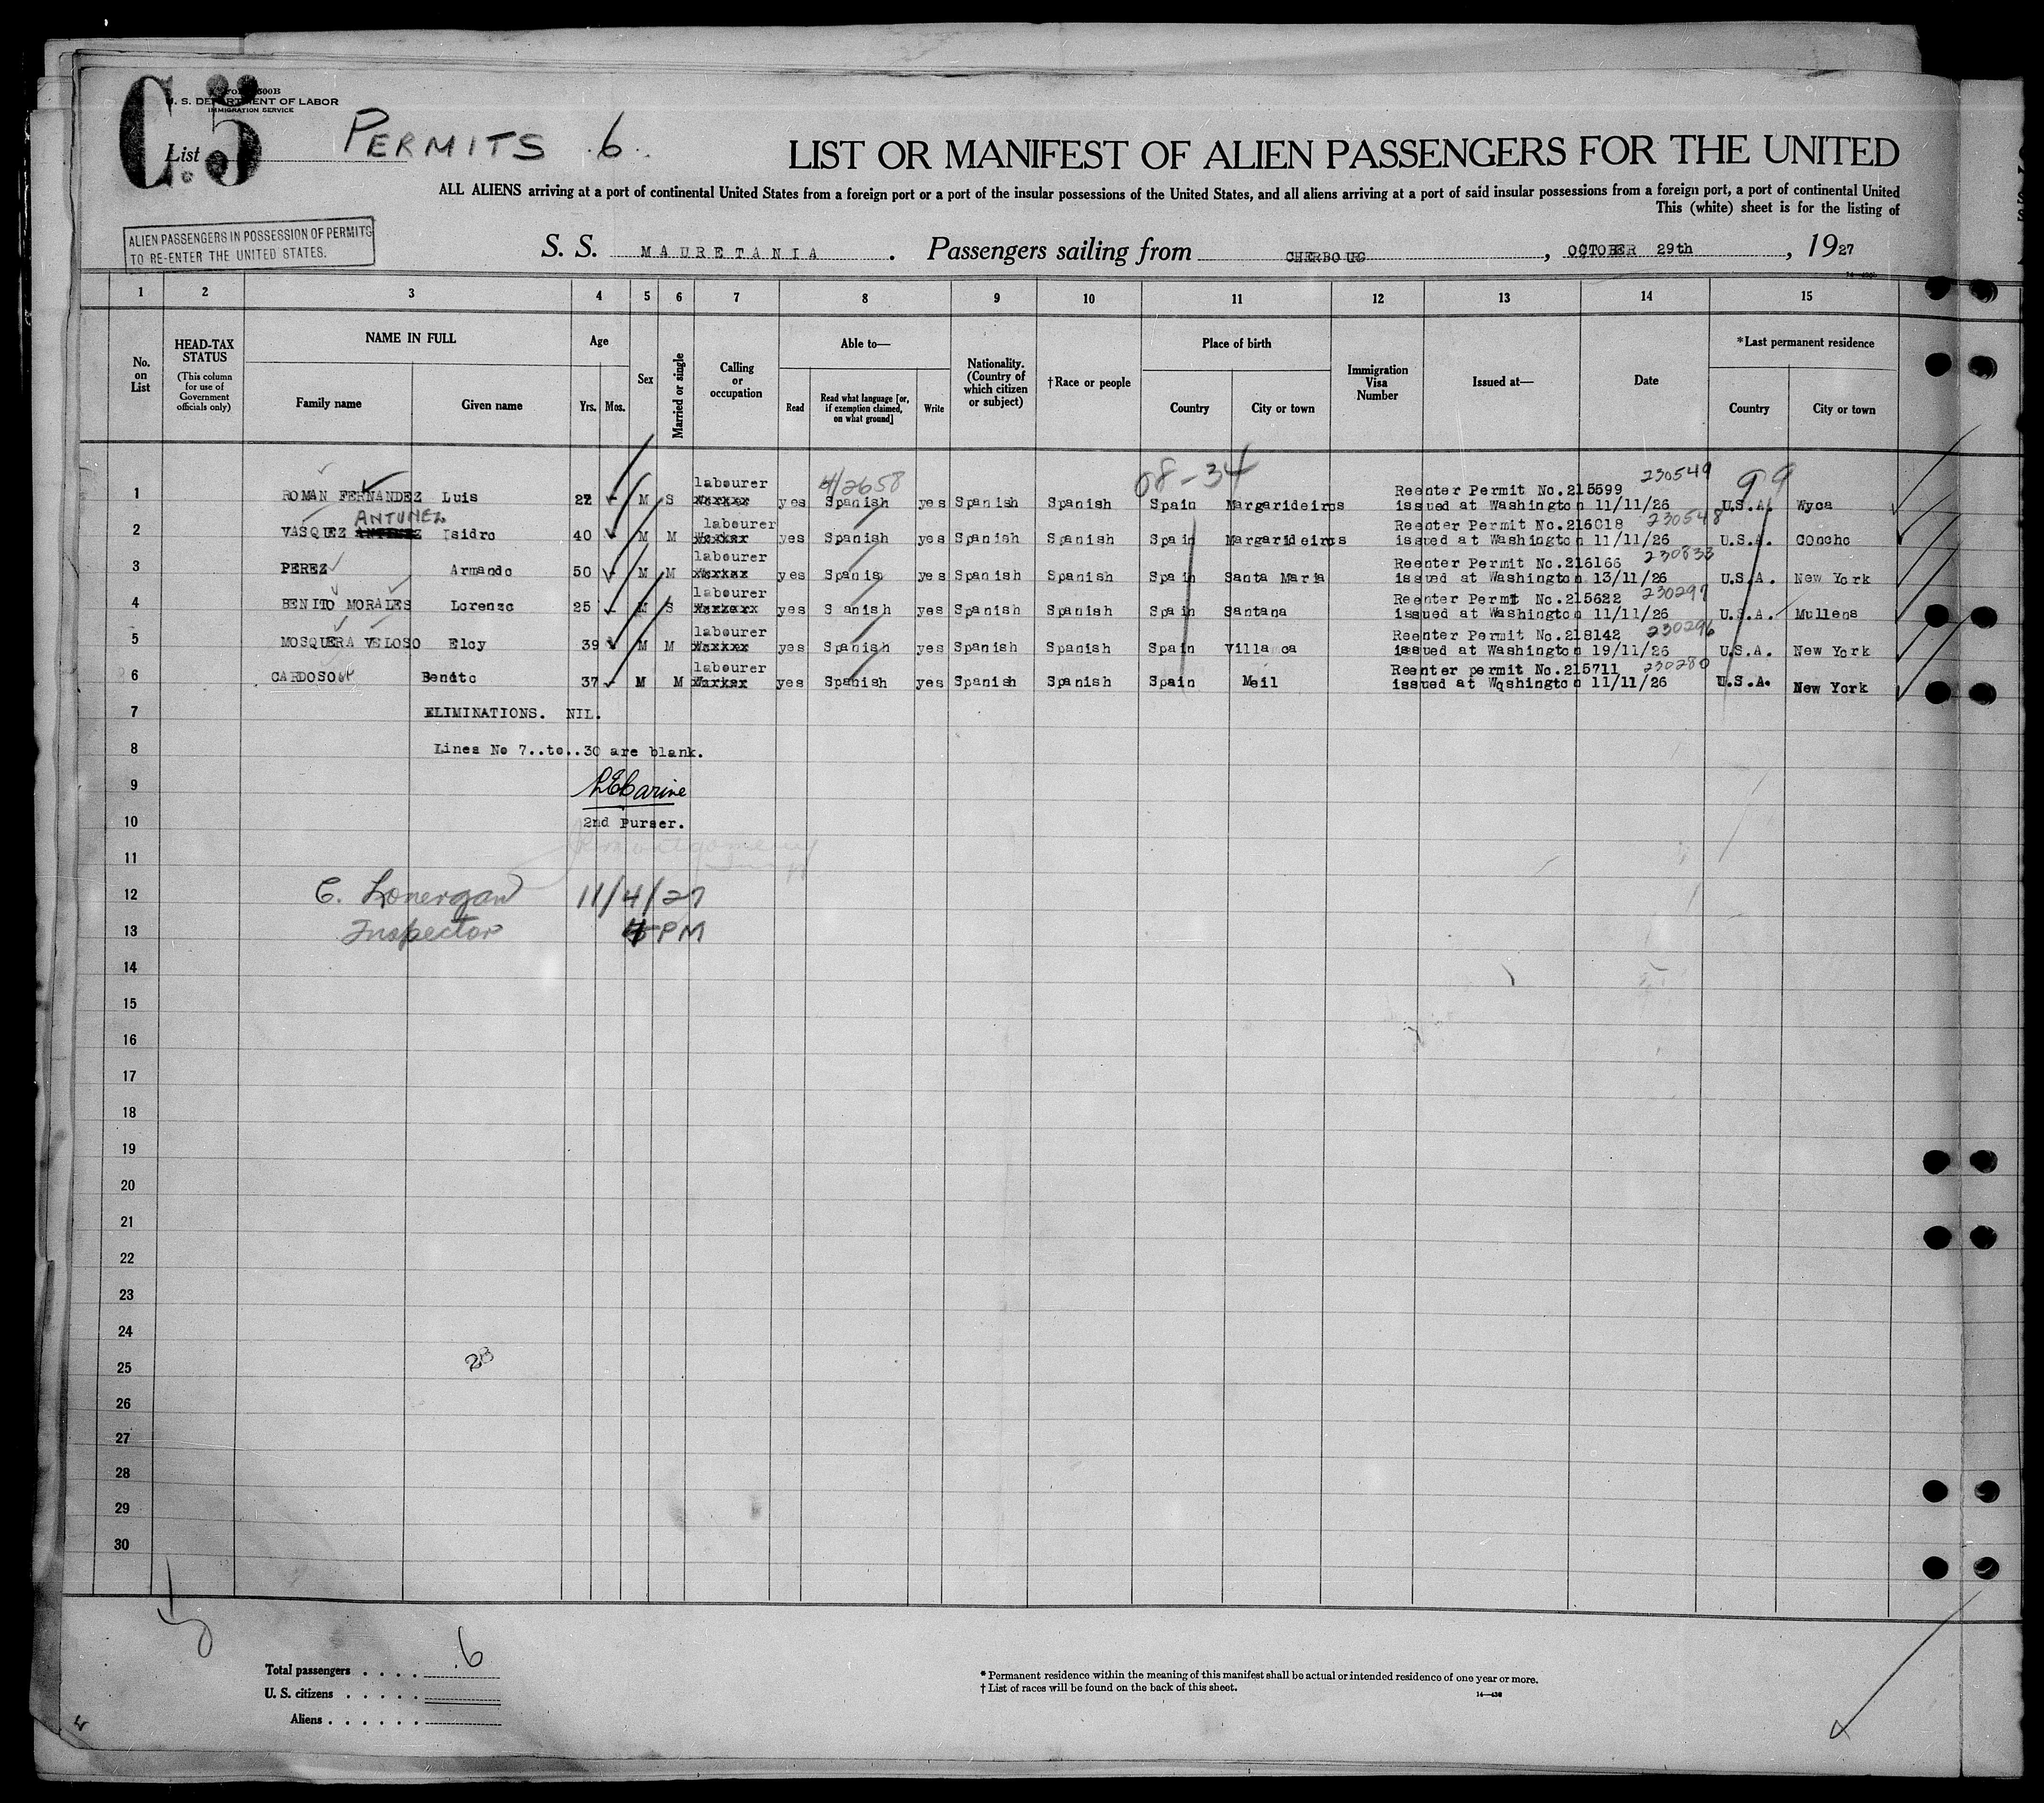 C. 5
U. S. DEPARTMENT OF LABOR
IMMIGRATION SERVICE
List
PERMITS 6
LIST OR MANIFEST OF ALIEN PASSENGERS FOR THE UNITED
ALL ALIENS arriving at a port of continental United States from a foreign port or a port of the insular possessions of the United States, and all aliens arriving at a port of said insular possessions from a foreign port, a port of continental United
This (white) sheet is for the listing of
ALIEN PASSENGERS IN POSSESSION OF PERMITS
TO RE-ENTER THE UNITED STATES.
S. S. MAURETANIA . Passengers sailing from CHERBOURG , OCTOBER 29th , 1927
1 2 3 4 5 6 7 8 9 10 11 12 13 14 15
No. on List
HEAD-TAX STATUS (This column for use of Government officials only)
NAME IN FULL Family name Given name
Age Yrs. Mos.
Sex
Married or single
Calling or occupation
Able to— Read Read what language [or, if exemption claimed, on what ground] Write
Nationality. (Country of which citizen or subject)
†Race or people
Place of birth Country City or town
Immigration Visa Number
Issued at—
Date
*Last permanent residence Country City or town
4/2658 08-34 230549 99
1 ROMAN FERNANDEZ Luis 22 M S labourer yes Spanish yes Spanish Spanish Spain Margarideiros Reenter Permit No.215599 issued at Washington 11/11/26 U.S.A. Wyca
2 VASQUEZ ANTUNEZ Isidro 40 M M labourer yes Spanish yes Spanish Spanish Spain Margarideiros Reenter Permit No.216018 230548 issued at Washington 11/11/26 U.S.A. Concho
3 PEREZ Armando 50 M M labourer yes Spanis yes Spanish Spanish Spain Santa Maria Reenter Permit No.216166 230833 issued at Washington 13/11/26 U.S.A. New York
4 BENITO MORALES Lorenzo 25 M S labourer yes S anish yes Spanish Spanish Spain Santana Reenter Permt No.215622 230297 issued at Washington 11/11/26 U.S.A. Mullens
5 MOSQUERA VELOSO Eloy 39 M M labourer yes Spanish yes Spanish Spanish Spain Villa ca Reenter Permit No.218142 230296 issued at Washington 19/11/26 U.S.A. New York
6 CARDOSO Benito 37 M M labourer yes Spanish yes Spanish Spanish Spain Meil Reenter permit No.215711 230280 issued at Wqshington 11/11/26 U.S.A. New York
7 ELIMINATIONS. NIL.
8 Lines No 7..to..30 are blank.
9
10 2nd Purser.
11
12 C. Lonergan 11/4/27
13 Inspector PM
14
15
16
17
18
19
20
21
22
23
24
25 23
26
27
28
29
30
Total passengers . . . . 6
U. S. citizens . . . . .
Aliens . . . . . .
* Permanent residence within the meaning of this manifest shall be actual or intended residence of one year or more.
† List of races will be found on the back of this sheet.
14—430